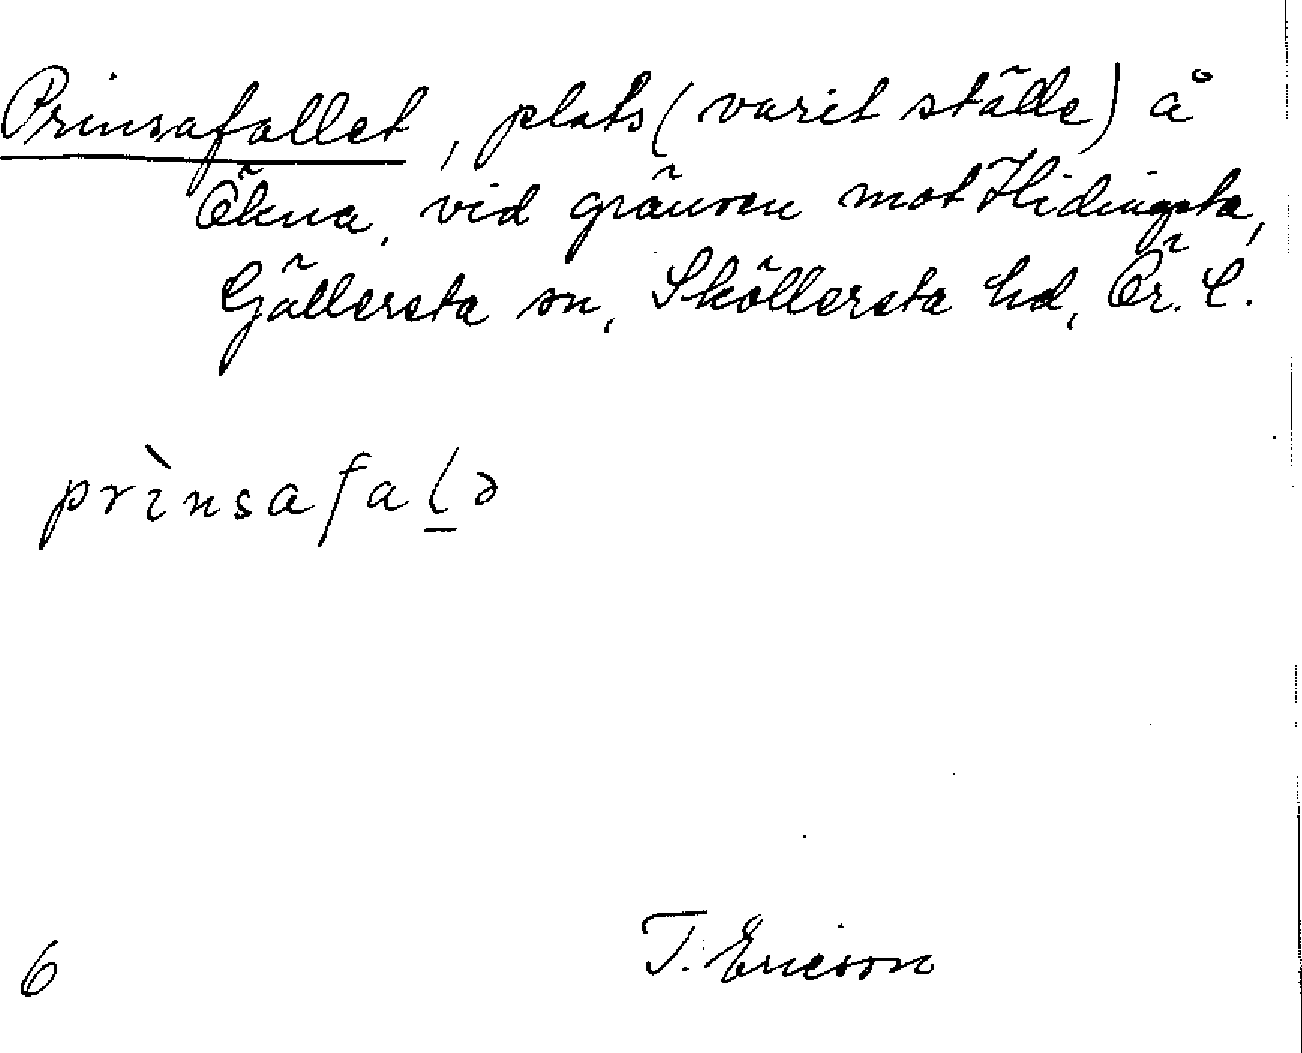 Prinsafallet, plats (varit ställe) å
Ökna, vid gränsen mot Hidingsta,
Gällersta sn, Sköllersta hd, Ör. L.
prìnsafal̲ə
6
T. Ericson